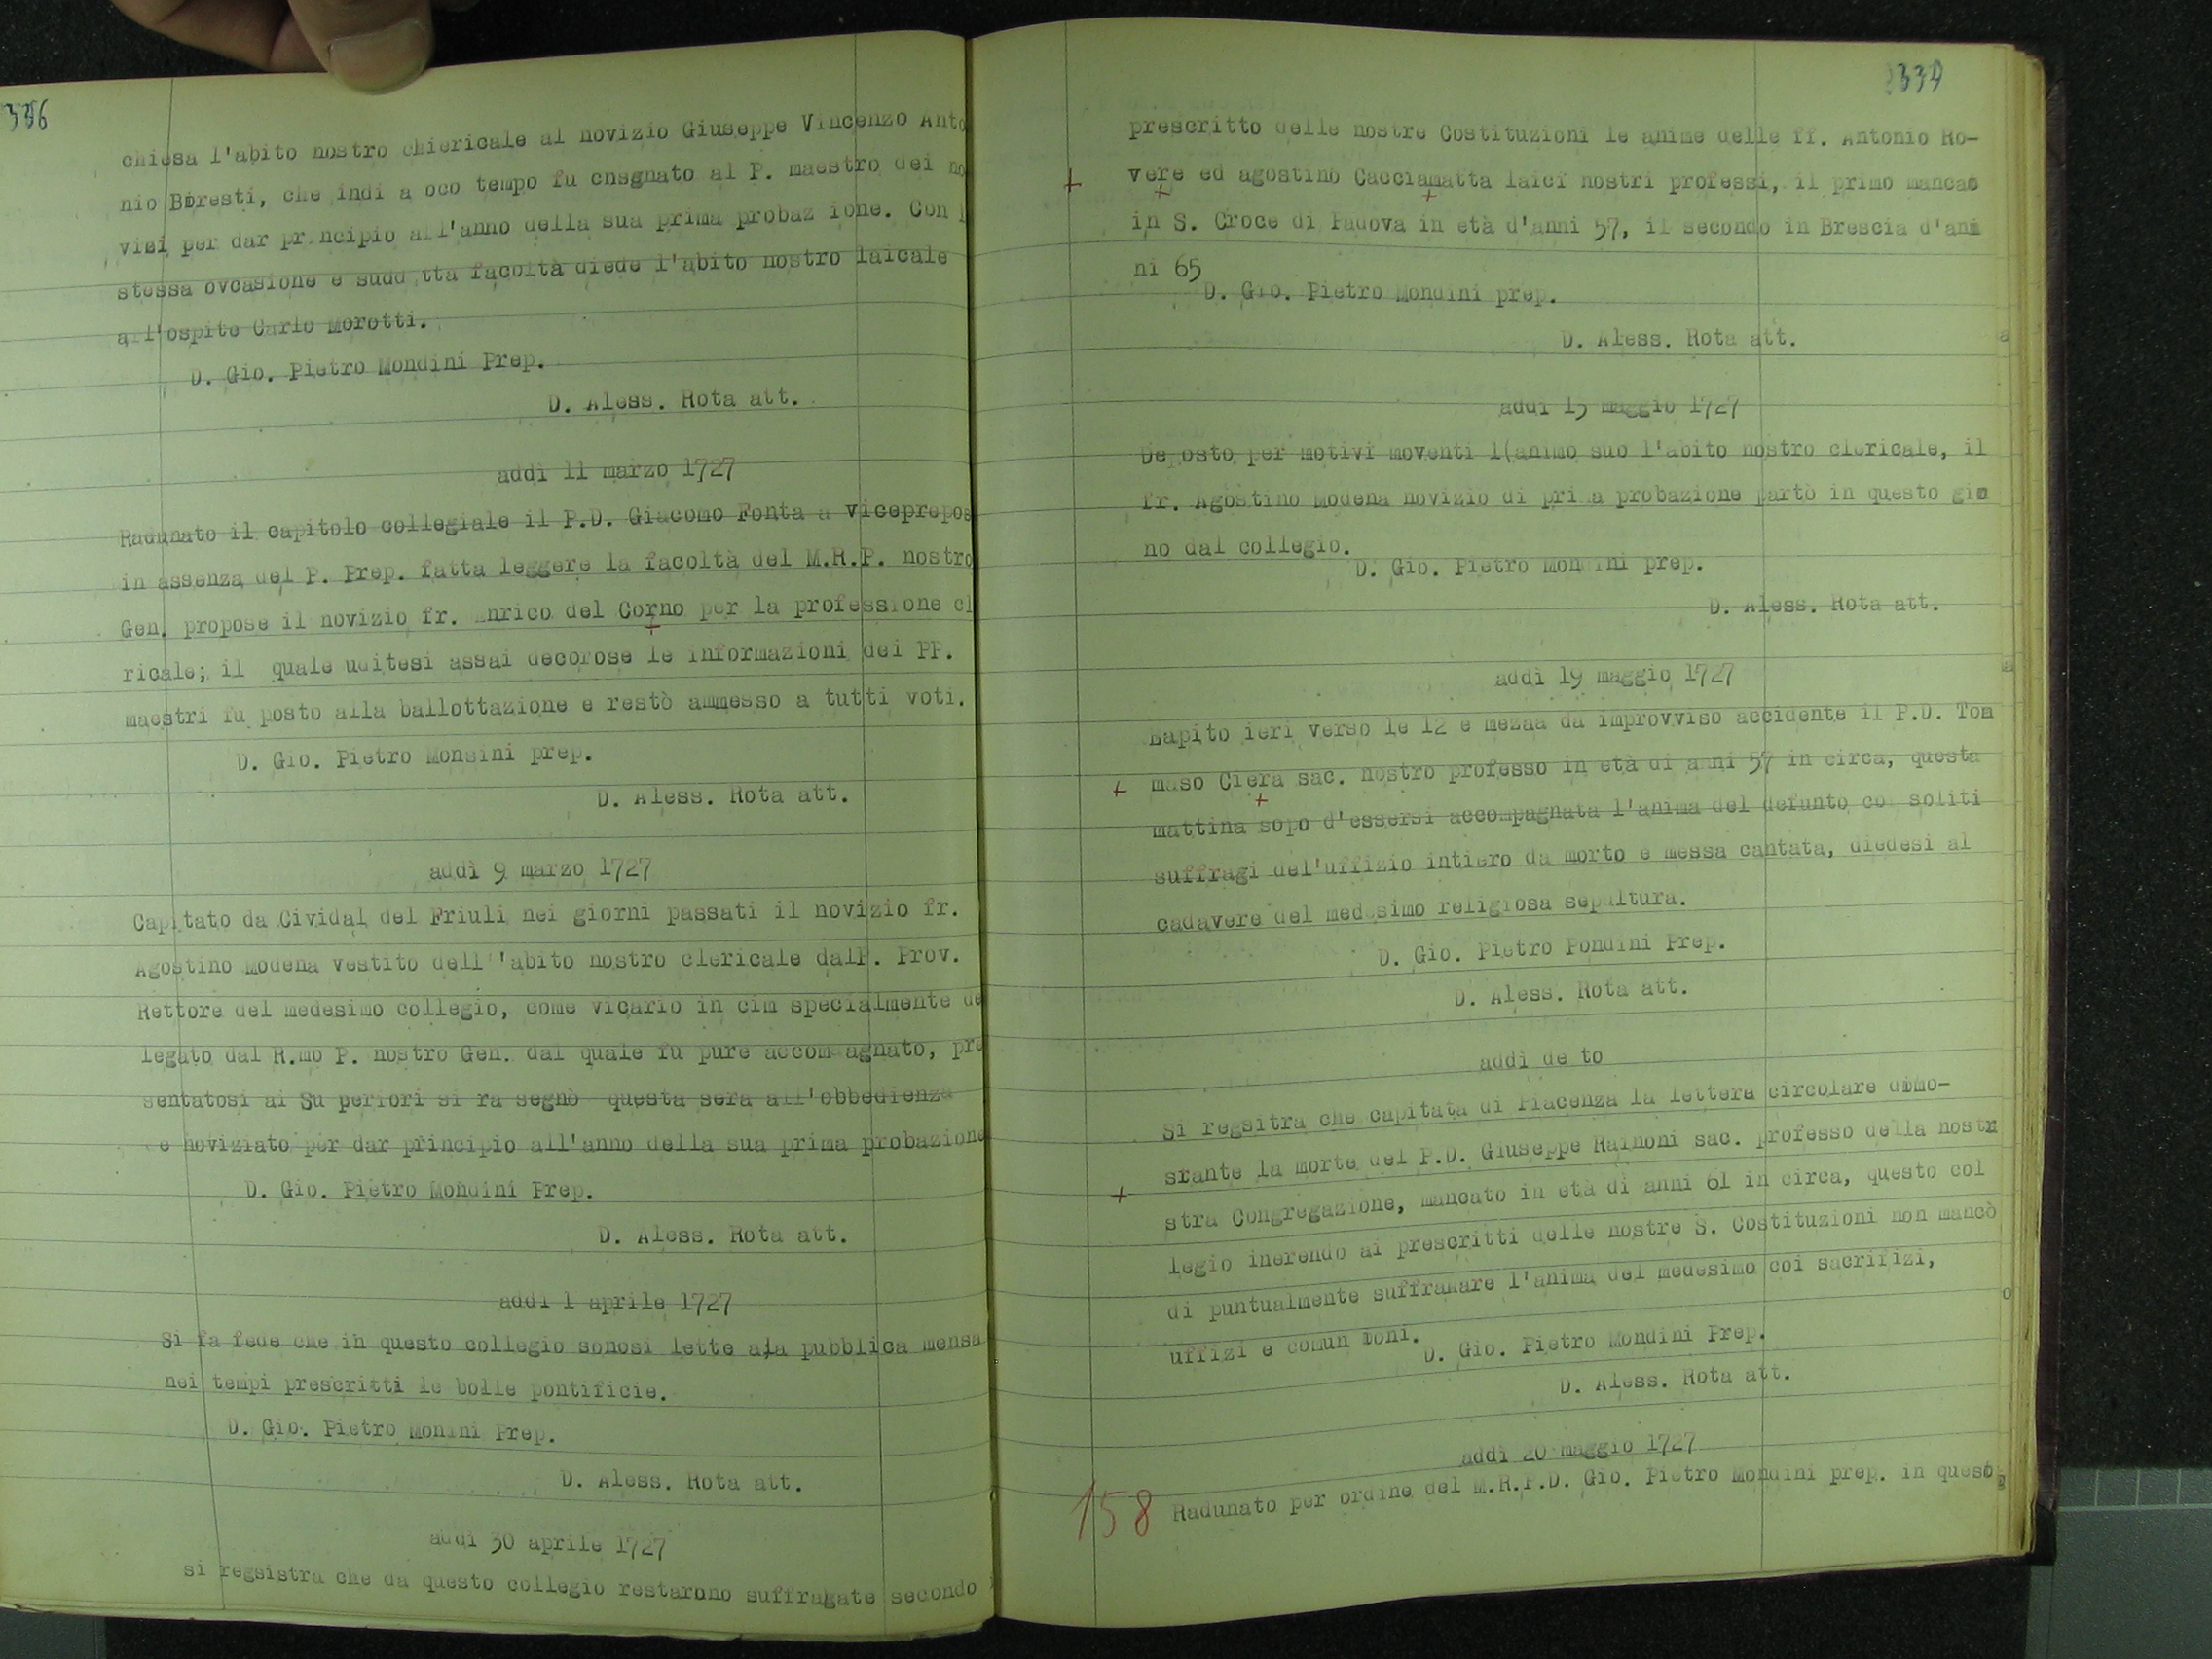 336
chiesa l'abito nostro chiericale al novizio Giuseppe Vincenzo Anto
nio Boresti, che indi a oco tempo fu cnsgnato al P. maestro dei no
vizi per dar principio all'anno della sua prima probaz ione. Con l
stessa ovcasione e sudd tta facoltà diede l'abito nostro laicale
all'ospite Carlo Morotti.
D. Gio. Pietro Mondini Prep.
D. Aless. Rota att.
addì 11 marzo 1727
Radunato il capitolo collegiale il P.D. Giacomo Fonta a vicepropos
in assenza del P. Prep. fatta leggere la facoltà del M.R.P. nostro
Gen. propose il novizio fr. Enrico del Corno per la professione cl
ricale; il quale uditesi assai decorose le informazioni dei PP.
maestri fu posto alla ballottazione e restò ammesso a tutti voti.
D. Gio. Pietro Monsini prep.
D. Aless. Rota att.
addì 9 marzo 1727
Capitato da Cividal del Friuli nei giorni passati il novizio fr.
Agostino Modena vestito dell''abito nostro clericale dalP. Prov.
Rettore del medesimo collegio, come vicario in cim specialmente de
legato dal R.mo P. nostro Gen. dal quale fu pure accom agnato, pre
sentatosi ai Su periori si ra segnò questa sera all'obbedienza
e noviziato per dar principio all'anno della sua prima probazione
D. Gio. Pietro Mondini Prep.
D. Aless. Rota att.
addì 1 aprile 1727
Si fa fede che in questo collegio sonosi lette ala pubblica mensa
nei tempi prescritti le bolle pontificie.
D. Gio. Pietro Monini Prep.
D. Aless. Rota att.
addì 30 aprile 1727
si regsistra che da questo collegio restarono suffragate secondo
339
prescritto delle nostre Costituzioni le anime delle ff. Antonio Ro-
+ vere ed agostino Cacciamatta laici nostri professi, il primo mancao
in S. Croce di Padova in età d'anni 57, il secondo in Brescia d'an
ni 65
D. Gio. Pietro Mondini prep.
D. Aless. Rota att.
addì 15 maggio 1727
De osto per motivi moventi l(animo suo l'abito nostro clericale, il
fr. Agostino Modena novizio di prima probazione partò in questo gio
no dal collegio.
D. Gio. Pietro Mondini prep.
D. Aless. Rota att.
addì 19 maggio 1727
Rapito ieri verso le 12 e mezaa da improvviso accidente il P.D. Tom
+ maso Ciera sac. nostro professo in età di anni 57 in circa, questa
mattina sopo d'essersi accompagnata l'anima del defunto co soliti
suffragi del'uffizio intiero da morto e messa cantata, diedesi al
cadavere del medesimo religiosa sepultura.
D. Gio. Pietro Pondini Prep.
D. Aless. Rota att.
addì de to
Si regsitra che capitata di Piacenza la lettera circolare dimo-
srante la morte del P.D. Giuseppe Rainoni sac. professo della nostr
+ stra Congregazione, mancato in età di anni 61 in circa, questo col
legio inerendo ai prescritti delle nostre S. Costituzioni non mancò
di puntualmente sufframare l'anima del medesimo coi sacrifizi,
uffizi e comun ioni.
D. Gio. Pietro Mondini Prep.
D. Aless. Rota att.
addì 20 maggio 1727
158 Radunato per ordine del M.R.P.D. Gio. Pietro Mondini prep. in questo